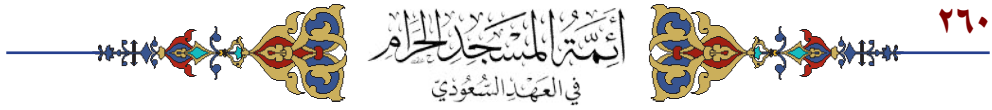 ٢٦٠
أَئِمَّةُ المَسْجَدِ الحَرَامِ
في العَهْدِ السُّعُوْدِيّ